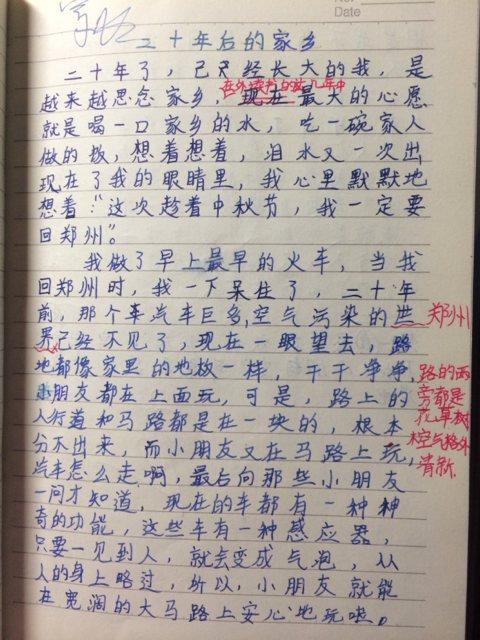 No.
Date
二十年后的家乡
二十年了，已经长大的我，是
在外读书的这几年中
越来越思念家乡，现在最大的心愿
就是喝一口家乡的水，吃一碗家人
做的饭，想着想着，泪水又一次出
现在了我的眼睛里，我心里默默地
想着："这次趁着中秋节，我一定要
回郑州"。
我做了早上最早的火车，当我
回郑州时，我一下呆住了，二十年
前，那个车汽车巨多，空气污染的世 郑州
界已经不见了，现在一眼望去，路
地都像家里的地板一样，干干净净， 路的两
小朋友都在上面玩，可是，路上的 旁都是
人行道和马路都是在一块的，根本 花草树
分不出来，而小朋友又在马路上玩， 木空气格外
汽车怎么走啊，最后向那些小朋友 清新
一问才知道，现在的车都有一种神
奇的功能，这些车有一种感应器，
只要一见到人，就会变成气泡，从
人的身上略过，所以，小朋友就能
在宽阔的大马路上安心地玩啦。